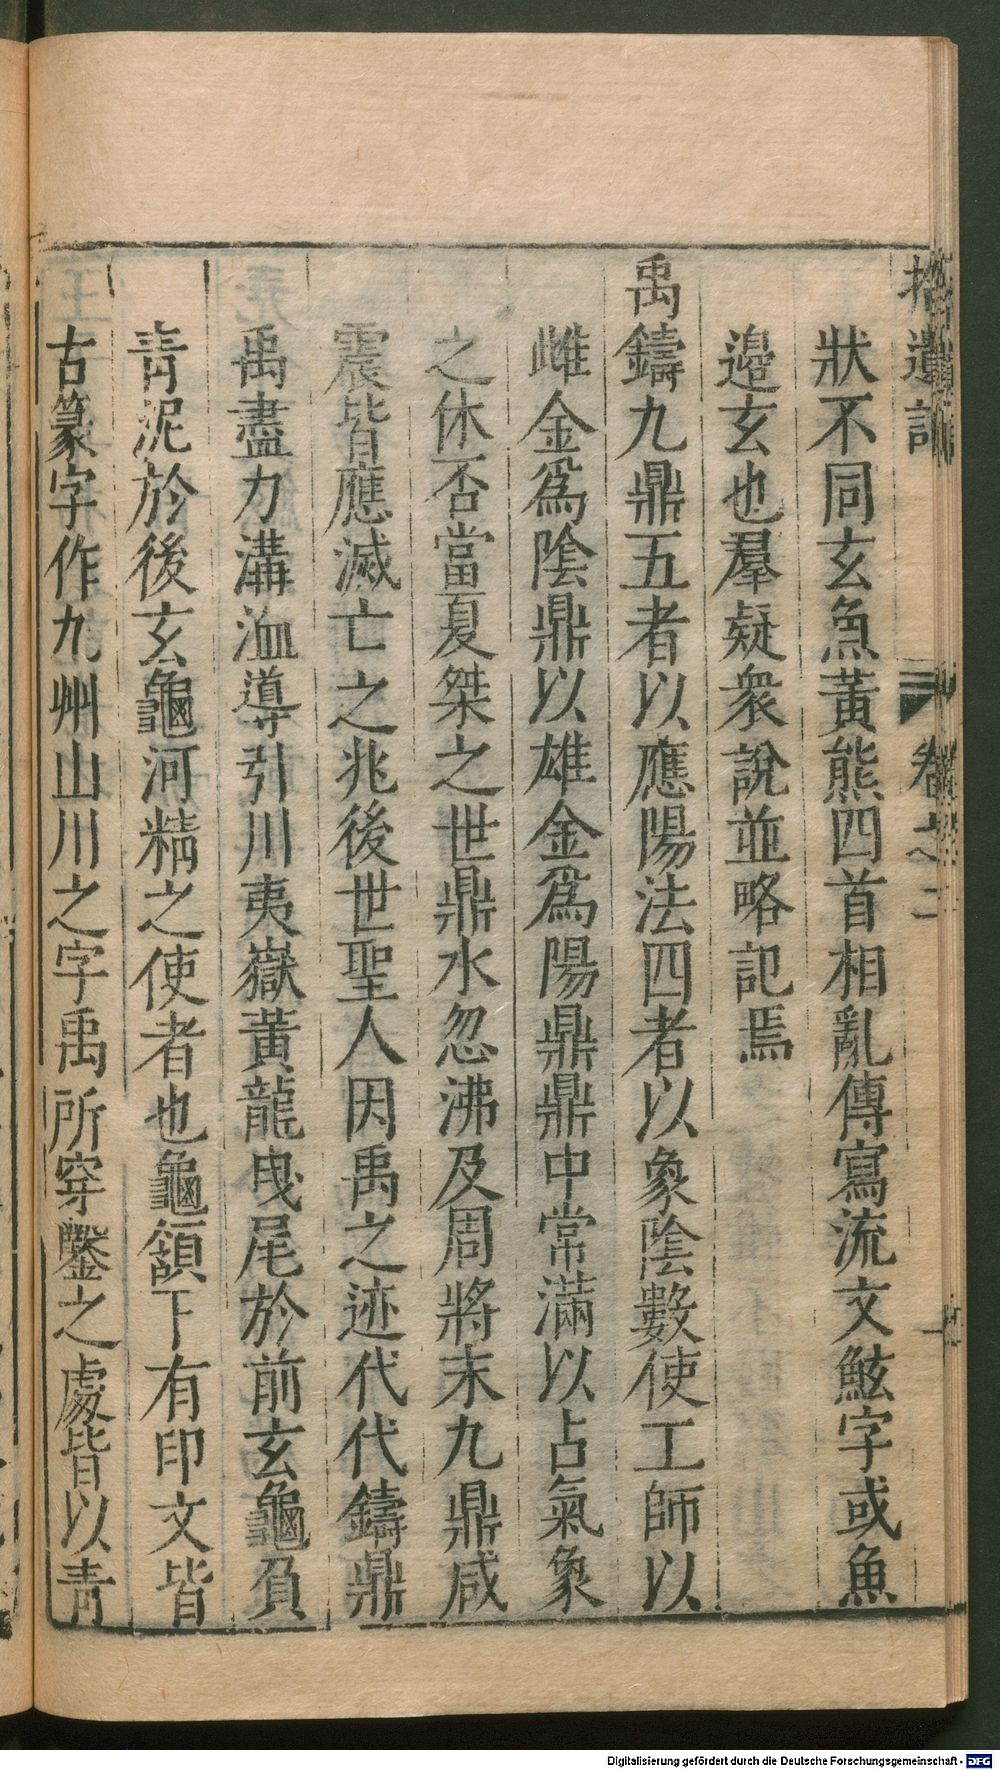 拾遺記 卷之二
狀不同玄魚黃熊四首相亂傳寫流文鮌字或魚
邉玄也羣疑衆說並略記焉
禹鑄九鼎五者以應陽法四者以象陰數使工師以
雌金爲陰鼎以雄金爲陽鼎鼎中常滿以占氣象
之休否當夏桀之世鼎水忽沸及周將末九鼎咸
震皆應滅亡之兆後世聖人因禹之迹代代鑄鼎
禹盡力溝洫導引川夷嶽黃龍曳尾於前玄龜負
青泥於後玄龜河精之使者也龜頷下有印文皆
古篆字作九州山川之字禹所穿鑿之處皆以青
Digitalisierung gefördert durch die Deutsche Forschungsgemeinschaft - DFG